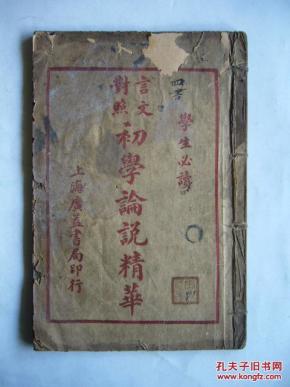 學生必讀
言文對照
初學論説精華
上海廣益書局印行
孔夫子旧书网